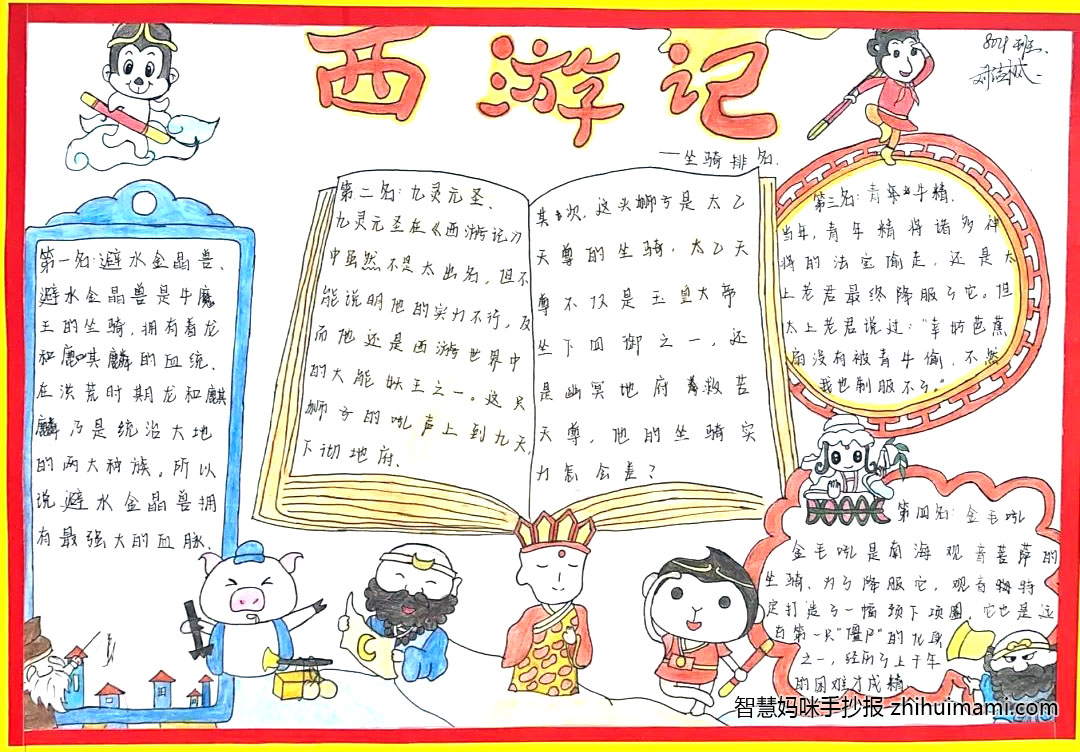 西游记
——坐骑排名.
801班.
第一名:避水金晶兽、
避水金晶兽是牛魔
王的坐骑,拥有着龙
和麒麟的血统.
在洪荒时期龙和麒
麟乃是统治大地
的两大种族。所以
说避水金晶兽拥
有最强大的血脉.
第二名:九灵元圣、
九灵元圣在《西游记》
中虽然不是太出名,但不
能说明他的实力不行,反
而他还是西游世界中
的大能妖王之一。这只
狮子的吼声上到九天,
下彻地府.
其次,这头狮子是太乙
天尊的坐骑,太乙天
尊不仅是玉皇大帝
坐下四御之一,还
是幽冥地府救苦
天尊,他的坐骑实
力怎会差?
第三名:青牛精.
当年,青牛精将诸多神
将的法宝偷走,还是太
上老君最终降服了它。但
太上老君说过:"幸好芭蕉
扇没有被青牛偷,不然
我也制服不了。"
第四名:金毛吼
金毛吼是南海观音菩萨的
坐骑,为了降服它,观音特
定打造了一幅颈下项圈,它也是远
古第一只"僵尸"的化身
之一,经历了上千年
的困难才成精.
智慧妈咪手抄报 zhihuimami.com